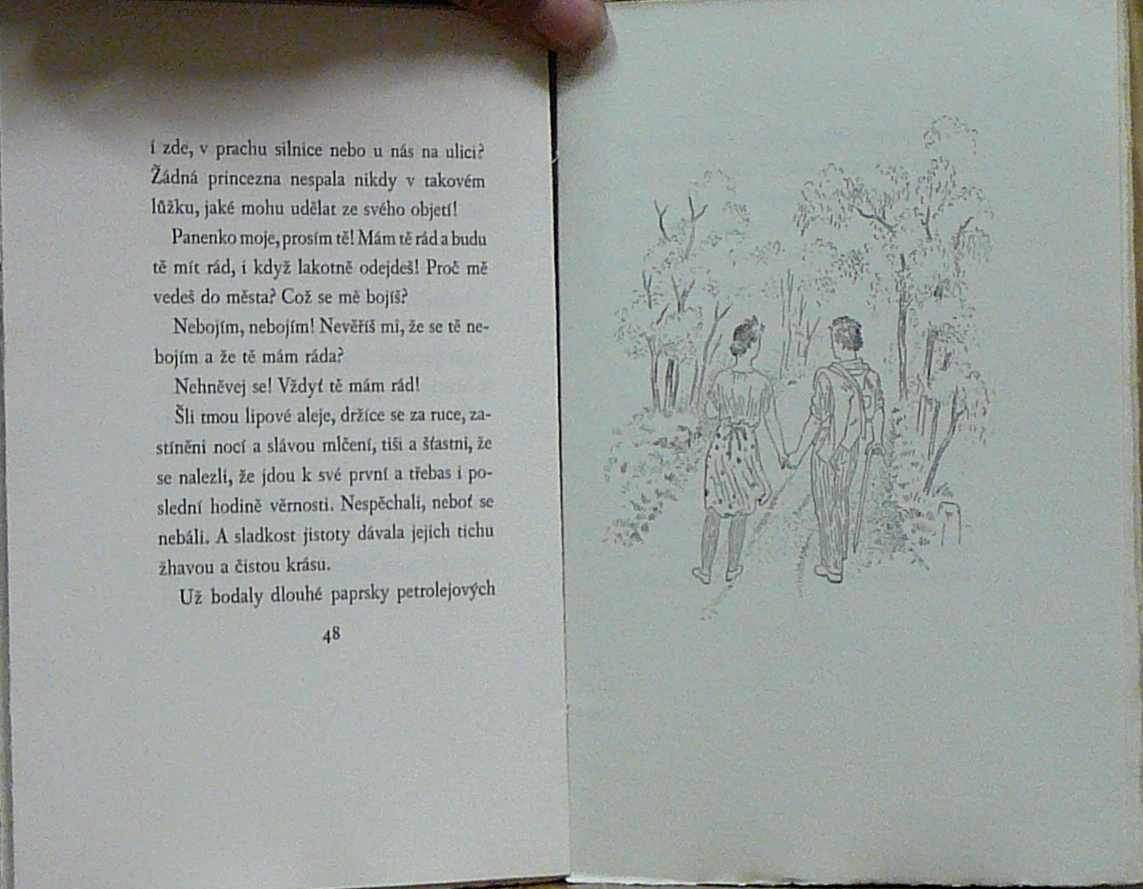 i zde, v prachu silnice nebo u nás na ulici?
Žádná princezna nespala nikdy v takovém
lůžku, jaké mohu udělat ze svého objetí!
Panenko moje, prosím tě! Mám tě rád a budu
tě mít rád, i když lakotně odejdeš! Proč mě
vedeš do města? Což se mě bojíš?
Nebojím, nebojím! Nevěříš mi, že se tě ne-
bojím a že tě mám ráda?
Nehněvej se! Vždyť tě mám rád!
Šli tmou lipové aleje, držíce se za ruce, za-
stíněni nocí a slávou mlčení, tiši a šťastni, že
se nalezli, že jdou k své první a třebas i po-
slední hodině věrnosti. Nespěchali, neboť se
nebáli. A sladkost jistoty dávala jejich tichu
žhavou a čistou krásu.
Už bodaly dlouhé paprsky petrolejových
48